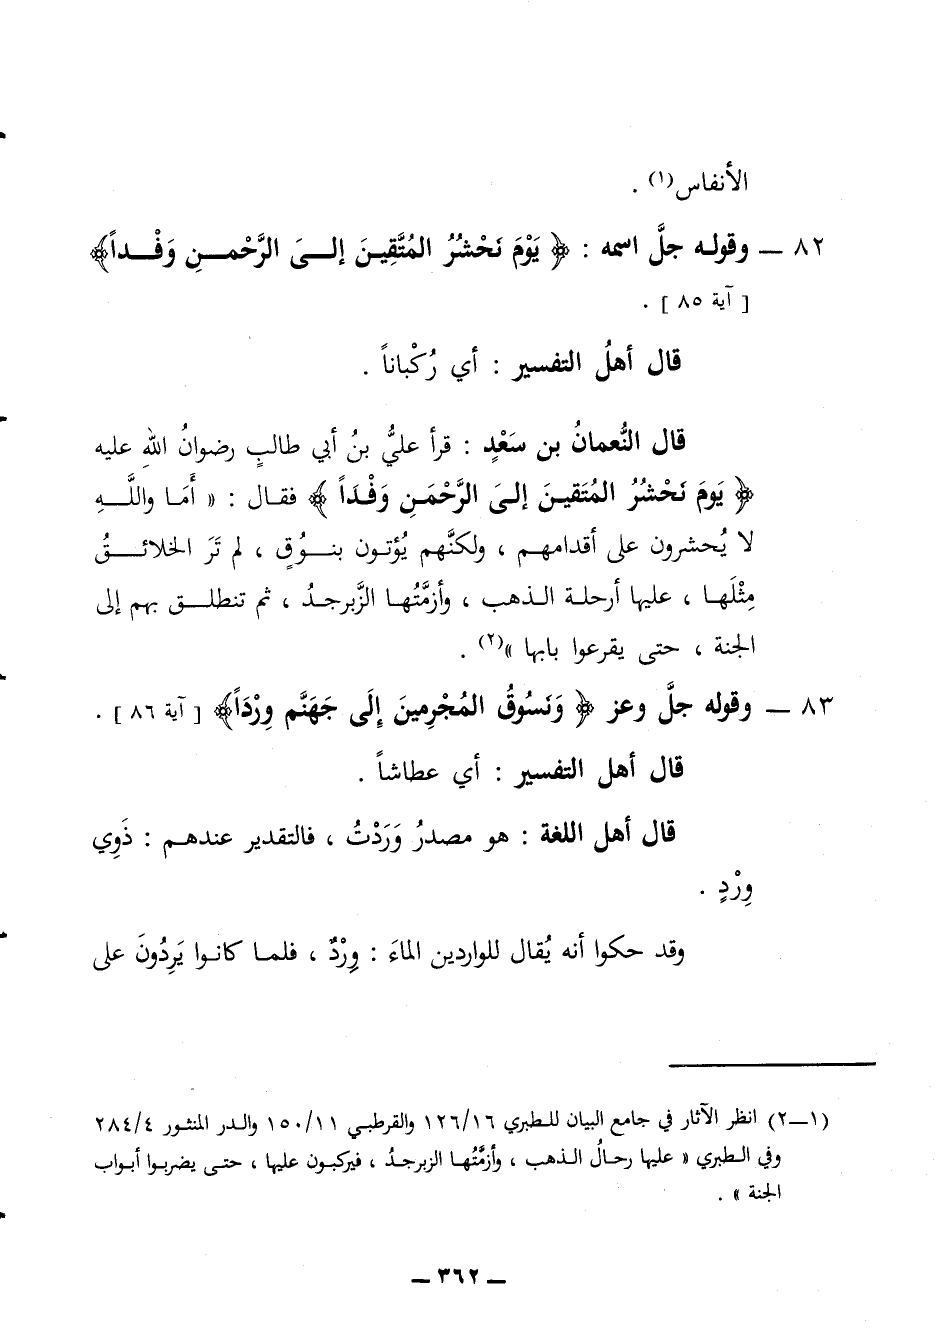 الأنفاس(١) .
٨٢ ــ وقوله جلَّ اسمه : ﴿ يَوْمَ نَحْشُرُ المُتَّقِينَ إلىَ الرَّحْمنِ وَفْداً﴾
[ آية ٨٥ ] .
قال أهلُ التفسير : أي رُكْباناً .
قال النُّعمانُ بن سَعْدٍ : قرأ عليُّ بنُ أبي طالبٍ رضوانُ اللهِ عليه
﴿ يَومَ نَحْشُرُ المُتَقينَ إلىَ الرَّحْمَنِ وَفْدَاً ﴾ فقال : « أَمَا واللَّهِ
لا يُحشرون على أقدامهم ، ولكنَّهم يُؤتون بنُوقٍ ، لم تَرَ الخلائقُ
مِثْلَها ، عليها أرحلة الذهب ، وأزمَّتُها الزَّبرجدُ ، ثم تنطلق بهم إلى
الجنة ، حتى يقرعوا بابها »(٢) .
٨٣ ــ وقوله جلَّ وعز ﴿ وَنَسُوقُ المُجْرِمينَ إلَى جَهَنَّم وِرْدَاً﴾ [ آية ٨٦ ] .
قال أهل التفسير : أي عطاشاً .
قال أهل اللغة : هو مصدرُ وَرَدْتُ ، فالتقدير عندهم : ذَوِي
وِرْدٍ .
وقد حكوا أنه يُقال للواردين الماءَ : وِرْدٌ ، فلما كانوا يَرِدُونَ على
(١ــ٢) انظر الآثار في جامع البيان للطبري ١٢٦/١٦ والقرطبي ١٥٠/١١ والدر المنثور ٢٨٤/٤
وفي الطبري « عليها رحالُ الذهب ، وأزمَّتُها الزبرجدُ ، فيركبون عليها ، حتى يضربوا أبواب
الجنة » .
ــ ٣٦٢ ــ